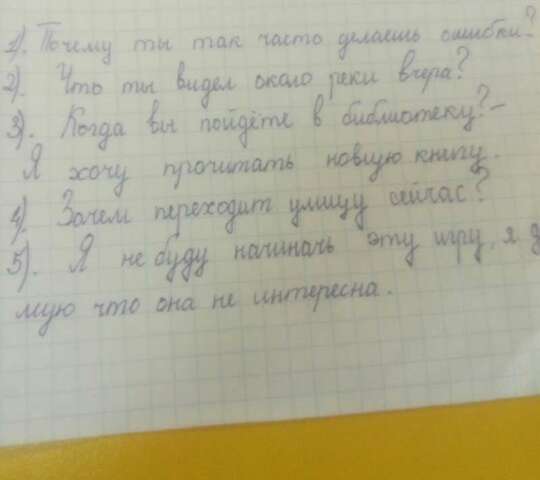 1). Почему ты так часто делаешь ошибки?
2). Что ты видел около реки вчера?
3). Когда вы пойдёте в библиотеку? -
Я хочу прочитать новую книгу.
4). Зачем переходит улицу сейчас?
5). Я не буду начинать эту игру, я д
мую что она не интересна.